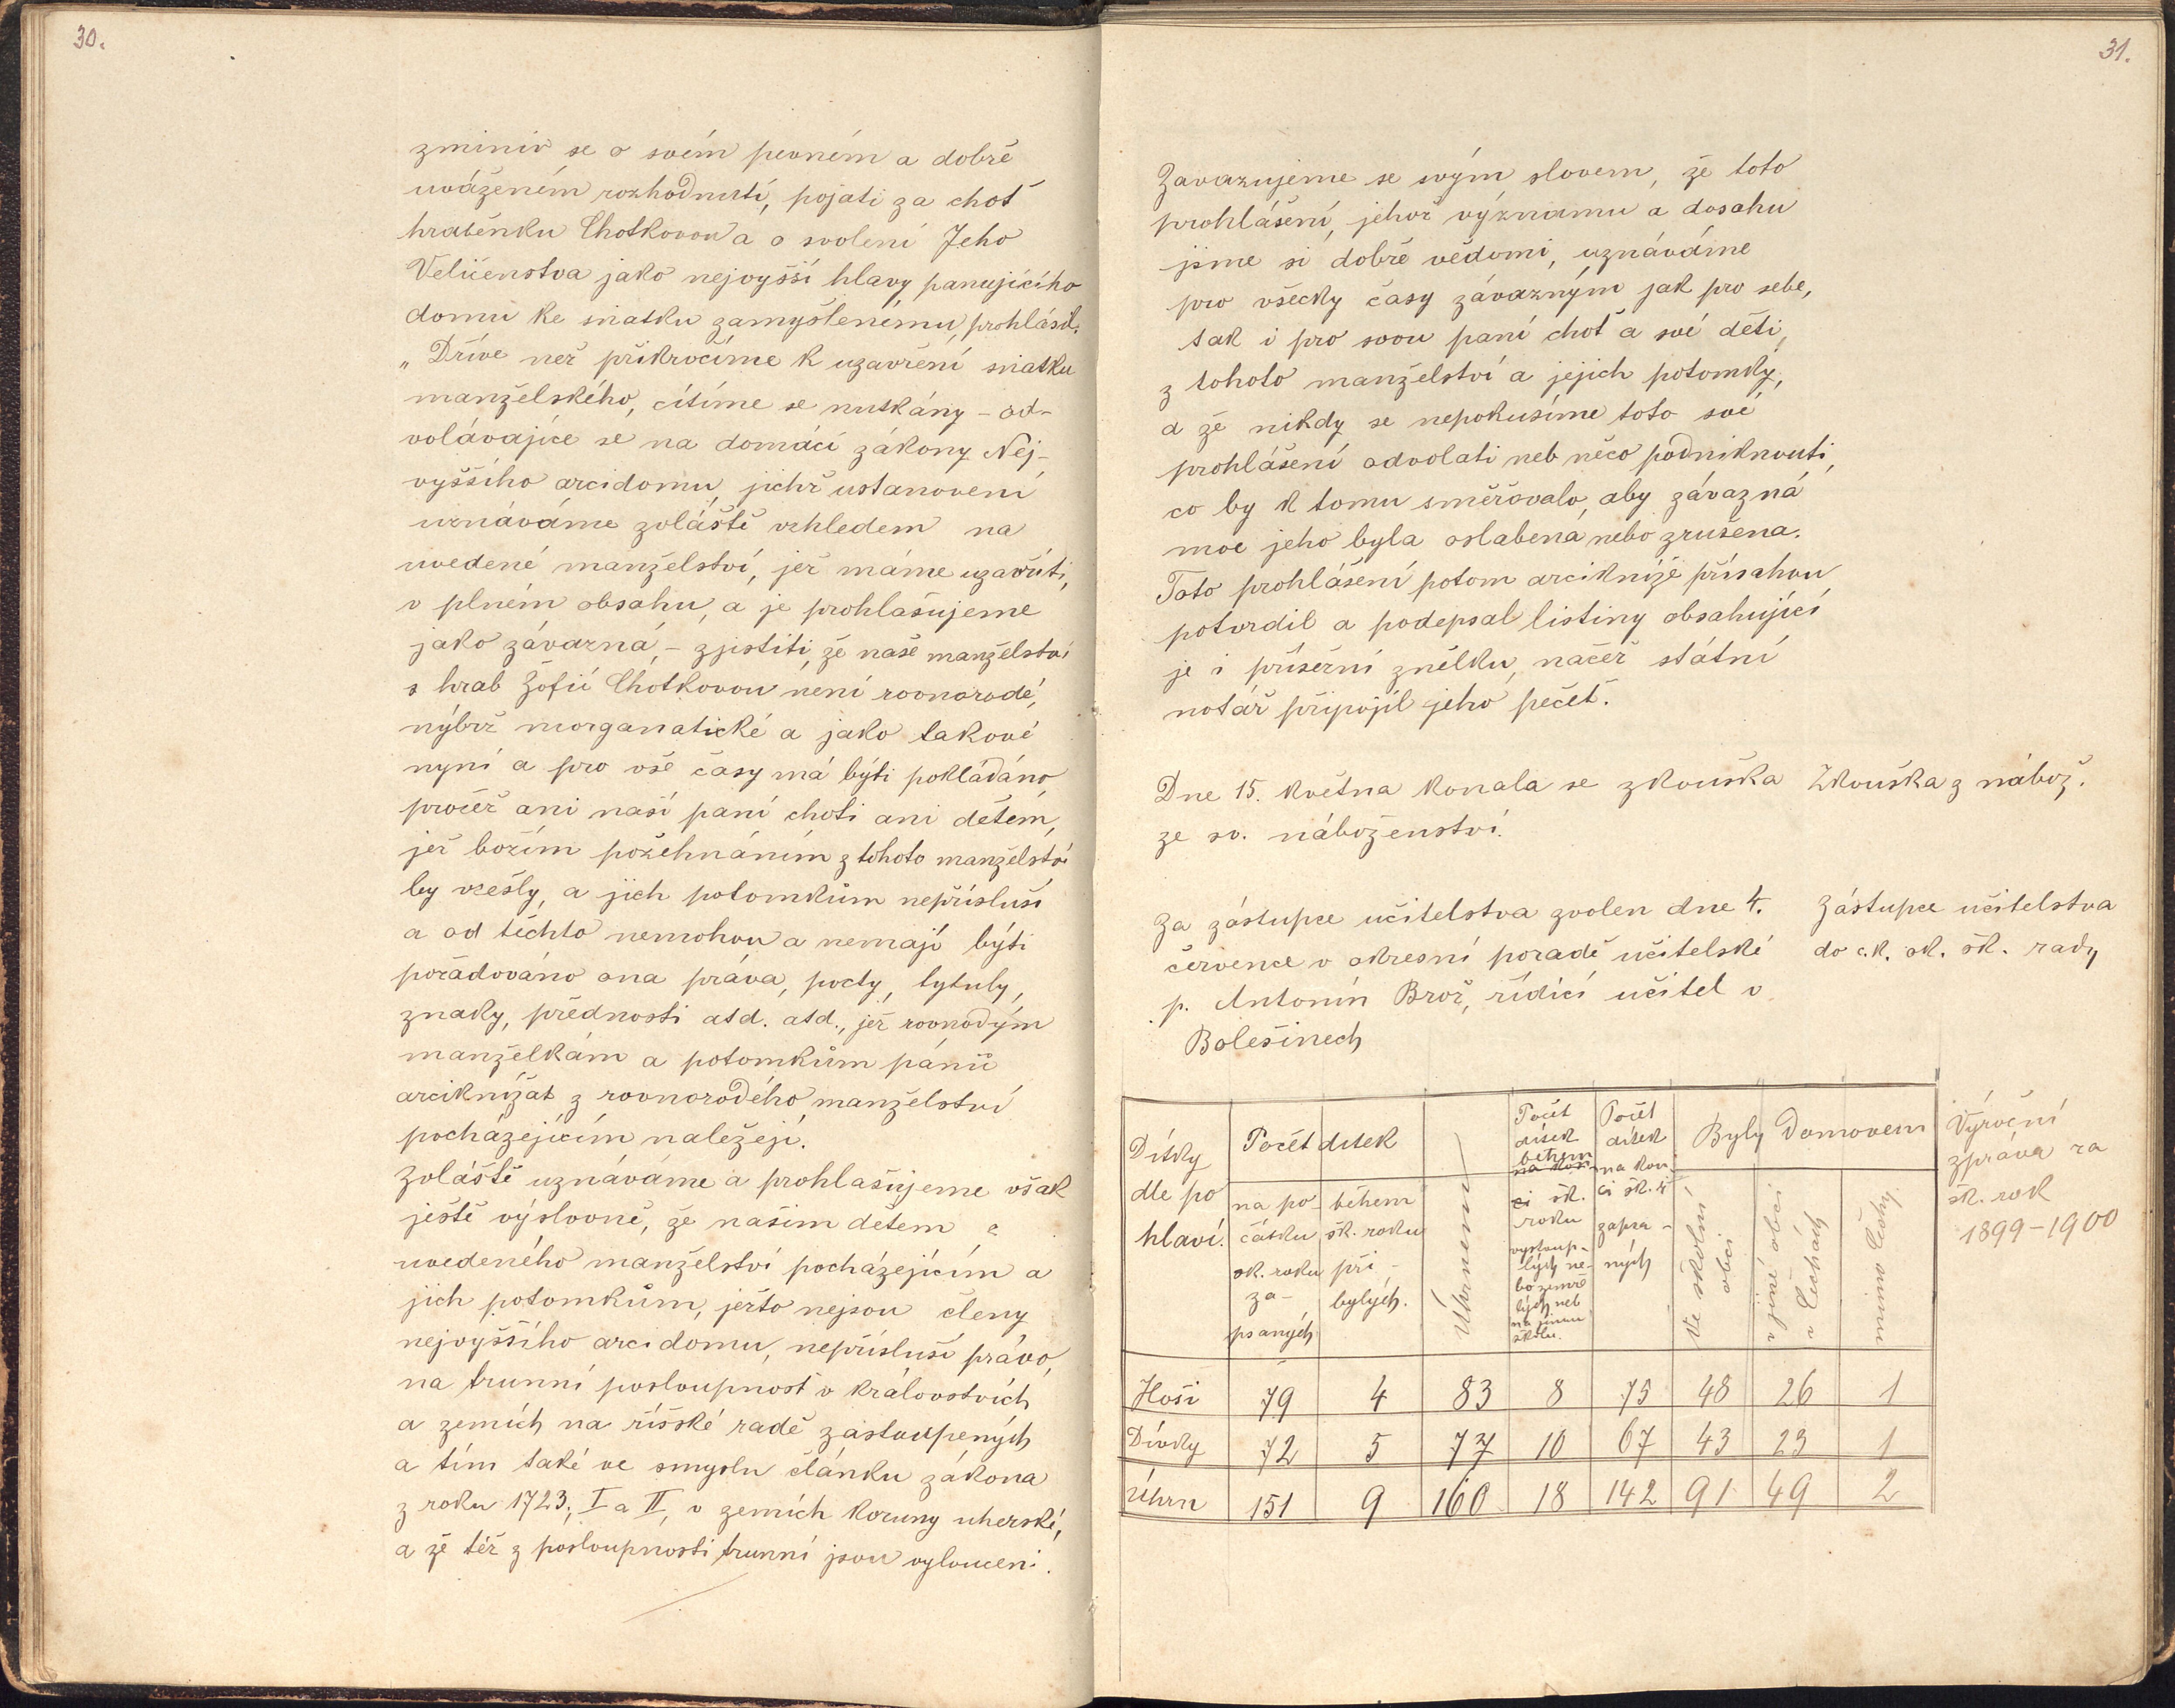 30.
zminiv se o svém pevném a dobře
uváženém rozhodnutí, pojati za choť
hraběnku Chotkovou a o svolení Jeho
Veličenstva jako nejvyšší hlavy panujícího
domu ke sňatku zamyšlenému, prohlásil:
„Dříve než přikročíme k uzavření sňatku
manželského, cítíme se nutkány – od-
volávajíce se na domácí zákony Nej-
vyššího arcidomu, jichž ustanovení
uznáváme zvláště vzhledem na
uvedené manželství, jež máme uzavříti,
v plném obsahu, a je prohlašujeme
jako závazná, – zjistiti, že naše manželství
s hrab Žofií Chotkovou není rovnorodé,
nýbrž morganatické a jako takové
nyní a pro vše časy má býti pokládáno,
pročež ani naší paní choti ani dětem,
jež božím požehnáním z tohoto manželství
by vzešly, a jich potomkům nepřísluší
a od těchto nemohou a nemají býti
požadováno ona práva, pocty, tytuly,
znaky, přednosti atd. atd., jež rovnodým
manželkám a potomkům pánů
arciknížat z rovnorodého manželství
pocházejícím naležejí.
Zvláště uznáváme a prohlašujeme však
ještě výslovně, že našim dětem z
uvedeného manželství pocházejícím a
jich potomkům, ježto nejsou členy
nejvyššího arcidomu, nepřísluší právo,
na trunní posloupnost v královstvích
a zemích na říšské radě zastoupených
a tím také ve smyslu článku zákona
z roku 1723; I a II, v zemích koruny uherské,
a že též z posloupnosti trunní jsou vyloučeni.
31.
Zavazujeme se svým slovem, že toto
prohlášení, jehož významu a dosahu
jsme si dobře vědomi, uznáváme
pro všecky časy závazným jak pro sebe,
tak i pro svou paní choť a své děti,
z tohoto manželství a jejich potomky,
a že nikdy se nepokusíme toto své
prohlášení odvolati neb něco podniknouti,
co by k tomu směřovalo, aby závazná
moc jeho byla oslabena nebo zrušena.
Toto prohlášení potom arcikníže přísahou
potvrdil a podepsal listiny obsahující
je i přísežní znělku, načež státní
notář připojil jeho pečeť.
Dne 15. května konala se zkouška
ze sv. náboženství.
Zkouška z nábož.
Za zástupce učitelstva zvolen dne 4.
července v okresní poradě učitelské
p. Antonín Brož, řídící učitel v
Bolešinech
Zástupce učitelstva
do c.k. ok. šk. rady
Dítky
dle po
hlaví.
Počet dítek
na po-
čátku
šk. roku
za-
psaných
během
šk. roku
při-
bylých.
Úhrnem
Počet
dítek
během
na kon-
ci šk.
roku
vystoup-
lých ne-
bo zemře
lých neb
na jinou
školu.
Počet
dítek
na kon-
ci šk. r.
zapsa-
ných
Byly Domovem
Ve školní
obci
v jiné obci
v Čechách
mimo Čechy.
Výroční
zpráva za
šk. rok
1899–1900
Hoši 79 4 83 8 75 48 26 1
Dívky 72 5 77 10 67 43 23 1
Úhrn 151 9 160 18 142 91 49 2